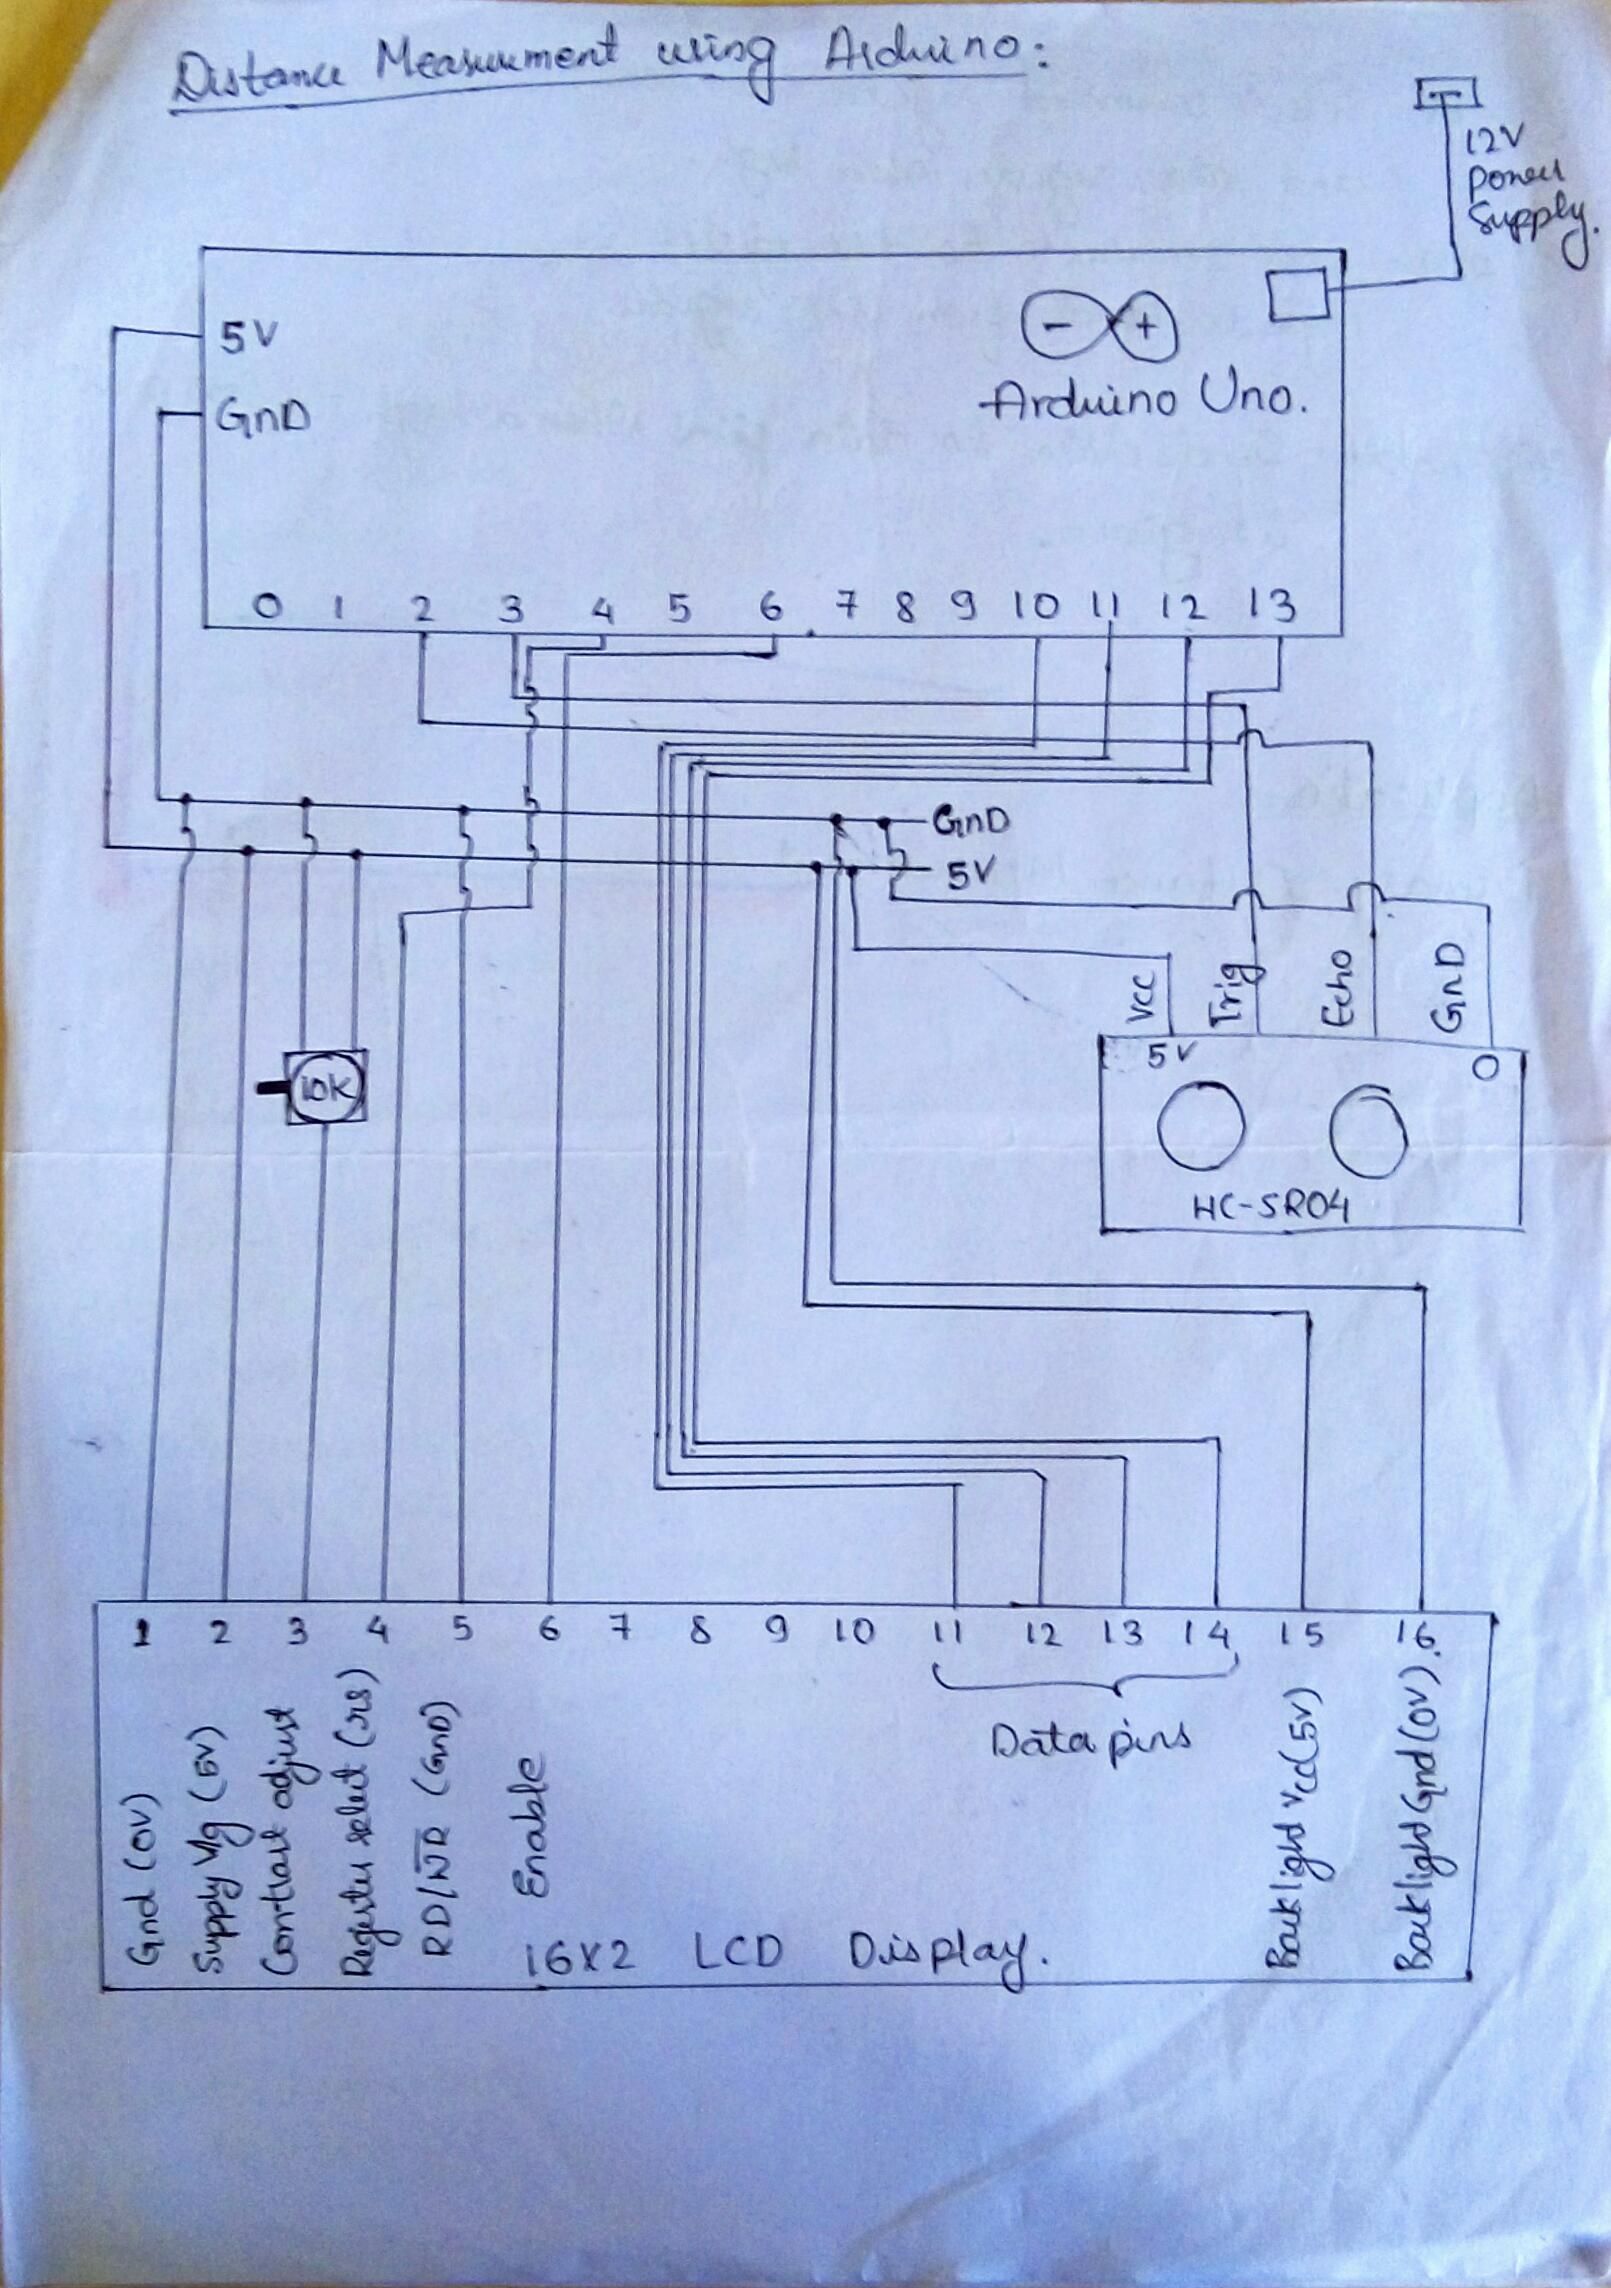 Distance Measurement using Arduino:
12V
Power
Supply.
5V
GnD
- +
Arduino Uno.
0 1 2 3 4 5 6 7 8 9 10 11 12 13
GnD
5V
Vcc Trig Echo GnD
5V 0
10K
HC-SR04
1 2 3 4 5 6 7 8 9 10 11 12 13 14 15 16.
Gnd (0V)
Supply Vlg (5V)
Contrast adjust
Register select (rs)
RD/W̅R̅ (GnD)
Enable
Data pins
Backlight Vcc (5V)
Backlight Gnd (0V).
16X2 LCD Display.